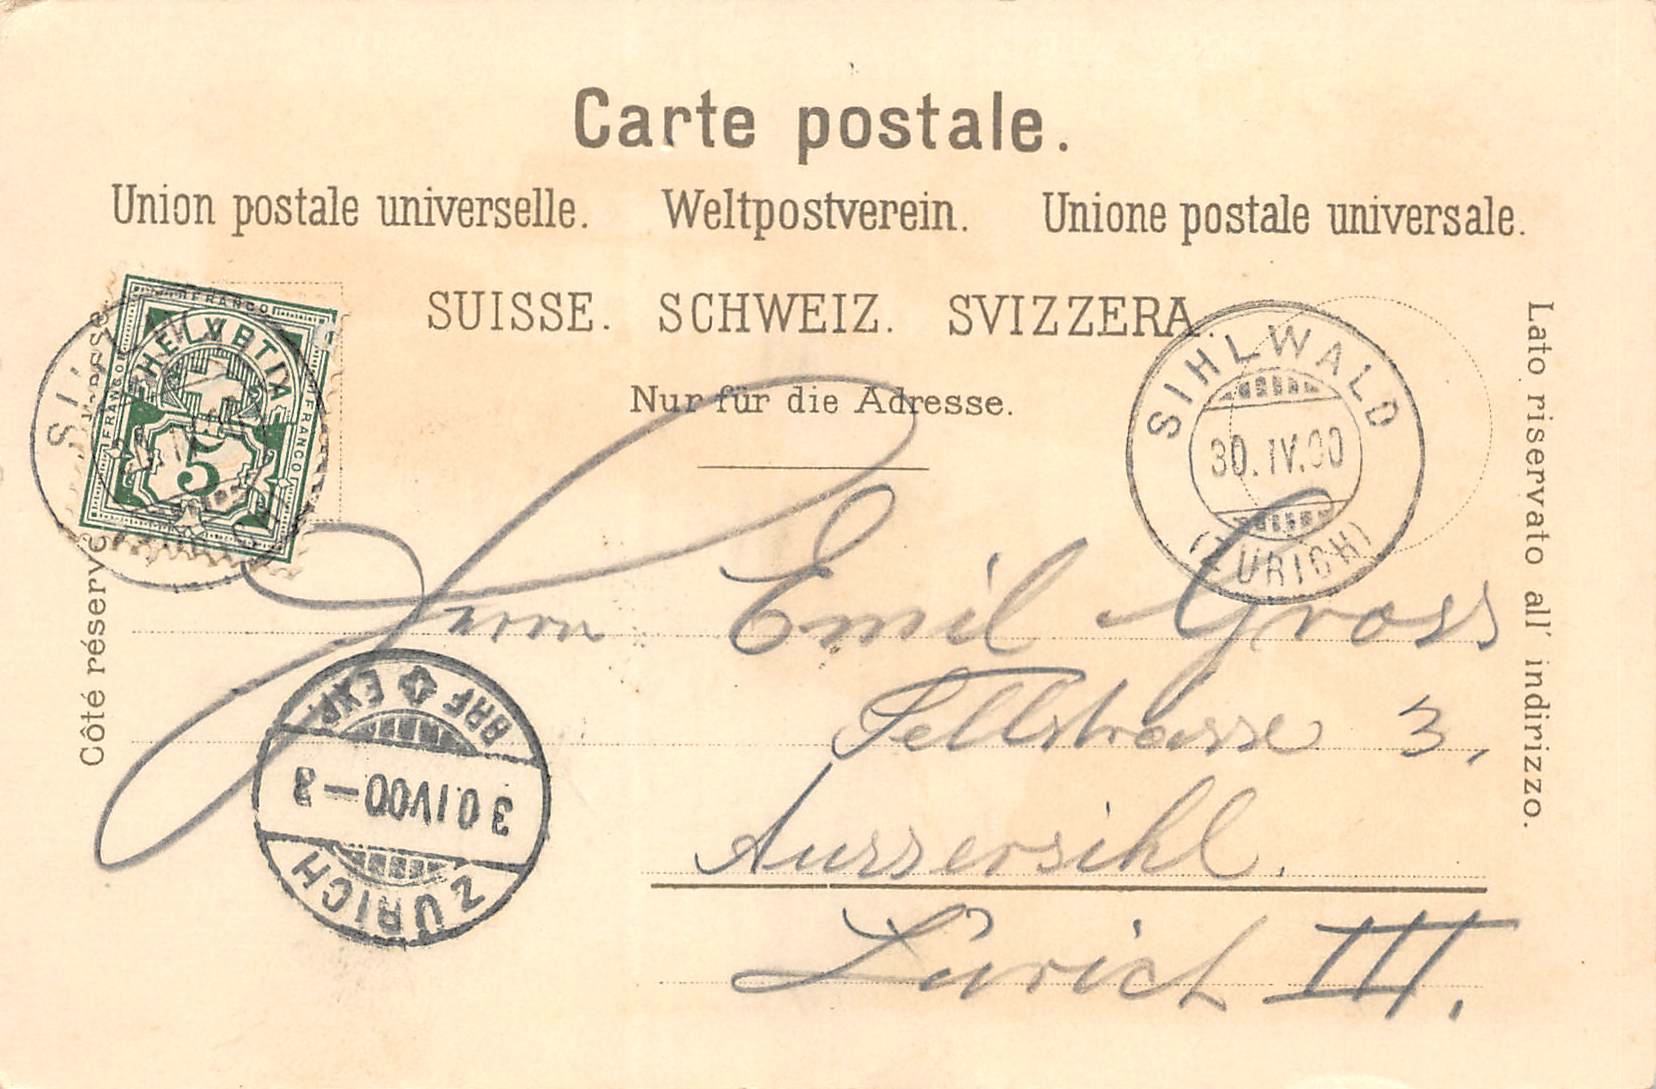 Carte postale.
Union postale universelle. Weltpostverein. Unione postale universale.
SUISSE. SCHWEIZ. SVIZZERA.
Nur für die Adresse.
Côté réservé
Lato riservato all' indirizzo.
FRANCO
FRANCO
FRANCO
HELVETIA
5
SIHLWALD
30.IV.00
(ZÜRICH)
Herrn Emil Gross
Tellstrasse 3,
Aussersihl.
Zürich III.
BRF EXP.
30IV00-8
ZÜRICH